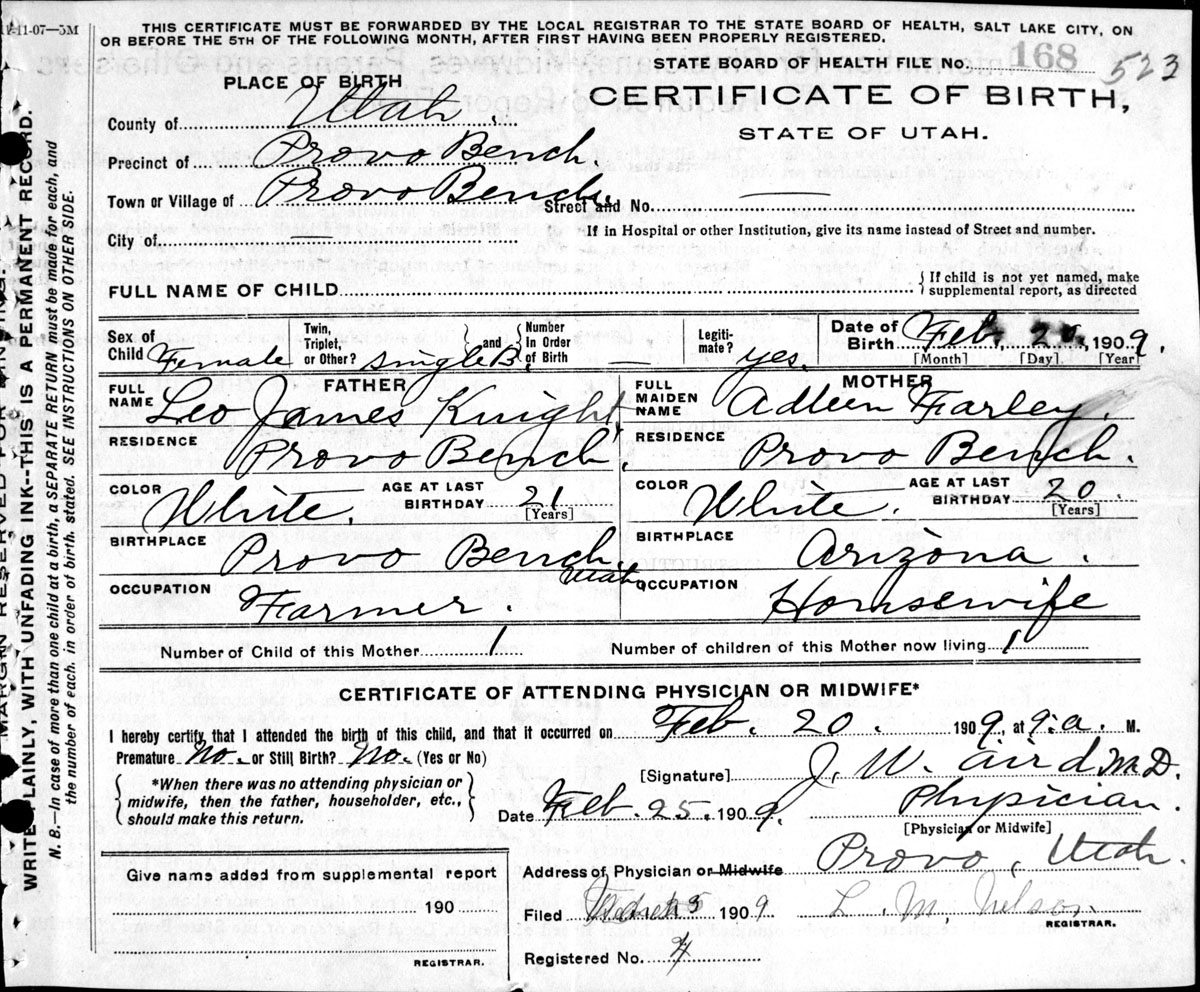 11-11-07—5M
THIS CERTIFICATE MUST BE FORWARDED BY THE LOCAL REGISTRAR TO THE STATE BOARD OF HEALTH, SALT LAKE CITY, ON
OR BEFORE THE 5TH OF THE FOLLOWING MONTH, AFTER FIRST HAVING BEEN PROPERLY REGISTERED.
STATE BOARD OF HEALTH FILE No. 168 523
PLACE OF BIRTH
CERTIFICATE OF BIRTH,
STATE OF UTAH.
County of Utah.
Precinct of Provo Bench.
Town or Village of Provo Bench. Street and No. —
City of —
If in Hospital or other Institution, give its name instead of Street and number.
FULL NAME OF CHILD { If child is not yet named, make
supplemental report, as directed
Sex of Child Female
Twin, Triplet, or Other? single } and { Number In Order of Birth
Legitimate? yes.
Date of Birth Feb. 20, 1909.
[Month] [Day] [Year]
FATHER
FULL NAME Leo James Knight,
RESIDENCE Provo Bench.
COLOR White. AGE AT LAST BIRTHDAY 21 [Years]
BIRTHPLACE Provo Bench. Utah
OCCUPATION Farmer.
MOTHER
FULL MAIDEN NAME Adleen Farley.
RESIDENCE Provo Bench.
COLOR White. AGE AT LAST BIRTHDAY 20. [Years]
BIRTHPLACE Arizona.
OCCUPATION Housewife
Number of Child of this Mother 1 Number of children of this Mother now living 1
CERTIFICATE OF ATTENDING PHYSICIAN OR MIDWIFE*
I hereby certify, that I attended the birth of this child, and that it occurred on Feb. 20. 1909, at 9. a. M.
Premature No. or Still Birth? No. (Yes or No)
{ *When there was no attending physician or
midwife, then the father, householder, etc.,
should make this return. }
[Signature] J. W. Aird M.D.
Date Feb. 25. 1909. Physician.
[Physician or Midwife]
Address of Physician or Midwife Provo, Utah.
Give name added from supplemental report
190
REGISTRAR.
Filed 1909 L. M. Nelson
REGISTRAR.
Registered No.
WRITE PLAINLY, WITH UNFADING INK--THIS IS A PERMANENT RECORD.
N. B.—In case of more than one child at a birth, a SEPARATE RETURN must be made for each, and
the number of each. in order of birth. stated. SEE INSTRUCTIONS ON OTHER SIDE.